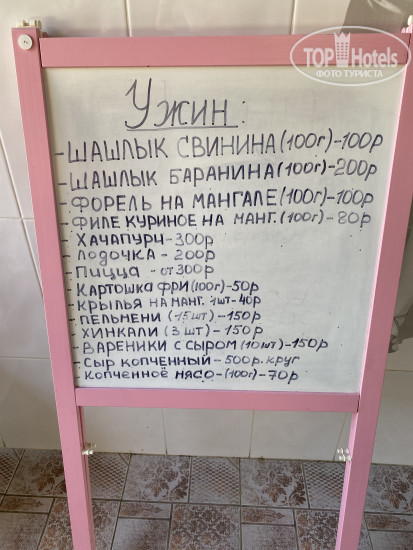 TOP Hotels
ФОТО ТУРИСТА
Ужин:
- ШАШЛЫК СВИНИНА (100г) - 100р
- ШАШЛЫК БАРАНИНА (100г) - 200р
- ФОРЕЛЬ НА МАНГАЛЕ (100г) - 100р
- ФИЛЕ КУРИНОЕ НА МАНГ. (100г) - 80р
- ХАЧАПУРИ - 300р
- ЛОДОЧКА - 200р
- ПИЦЦА - от 300р
- КАРТОШКА ФРИ (100г) - 50р
- КРЫЛЬЯ НА МАНГ. 1шт - 40р
- ПЕЛЬМЕНИ (15 шт) - 150р
- ХИНКАЛИ (3 шт) - 150р
- ВАРЕНИКИ С СЫРОМ (10 шт) - 150р
- СЫР КОПЧЕННЫЙ - 500р. круг
- КОПЧЕННОЕ МЯСО - (100г) - 70р